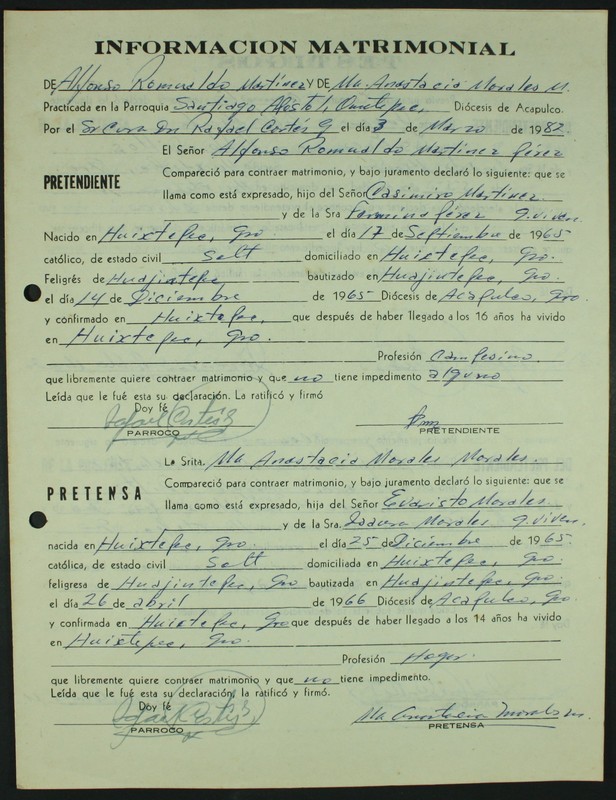 INFORMACION MATRIMONIAL
DE Alfonso Romualdo Martínez Y DE Ma. Anastacia Morales M.
Practicada en la Parroquia Santiago Apóstol, Ometepec, Diócesis de Acapulco.
Por el Sr Cura Dn Rafael Cortés G. el día 3 de Marzo de 1982
El Señor Alfonso Romualdo Martínez Pérez
PRETENDIENTE
Compareció para contraer matrimonio, y bajo juramento declaró lo siguiente: que se
llama como está expresado, hijo del Señor Casimiro Martínez.
y de la Sra Fermina Pérez q. viven
Nacido en Huixtepec, Gro el día 17 de Septiembre de 1965
católico, de estado civil Solt domiciliado en Huixtepec, Gro.
Feligrés de Huajintepec bautizado en Huajintepec, Gro.
el día 14 de Diciembre de 1965 Diócesis de Acapulco, Gro.
y confirmado en Huixtepec, que después de haber llegado a los 16 años ha vivido
en Huixtepec, Gro.
Profesión Campesino
que libremente quiere contraer matrimonio y que no tiene impedimento alguno
Leída que le fué esta su declaración. La ratificó y firmó
Doy fé
Rafael Cortés G
PARROCO
PRETENDIENTE
La Srita. Ma Anastacia Morales Morales.
PRETENSA
Compareció para contraer matrimonio, y bajo juramento declaró lo siguiente: que se
llama como está expresado, hija del Señor Evaristo Morales
y de la Sra. Morales q. viven.
nacida en Huixtepec, Gro. el día 25 de Diciembre de 1965.
católica, de estado civil Solt domiciliada en Huixtepec, Gro.
feligresa de Huajintepec, Gro bautizada en Huajintepec, Gro.
el día 26 de abril de 1966 Diócesis de Acapulco, Gro.
y confirmada en Huixtepec, Gro que después de haber llegado a los 14 años ha vivido
en Huixtepec, Gro.
Profesión Hogar.
que libremente quiere contraer matrimonio y que no tiene impedimento.
Leída que le fué esta su declaración, la ratificó y firmó.
Doy fé
Rafael Cortés G
PARROCO
Ma Anastacia Morales M.
PRETENSA